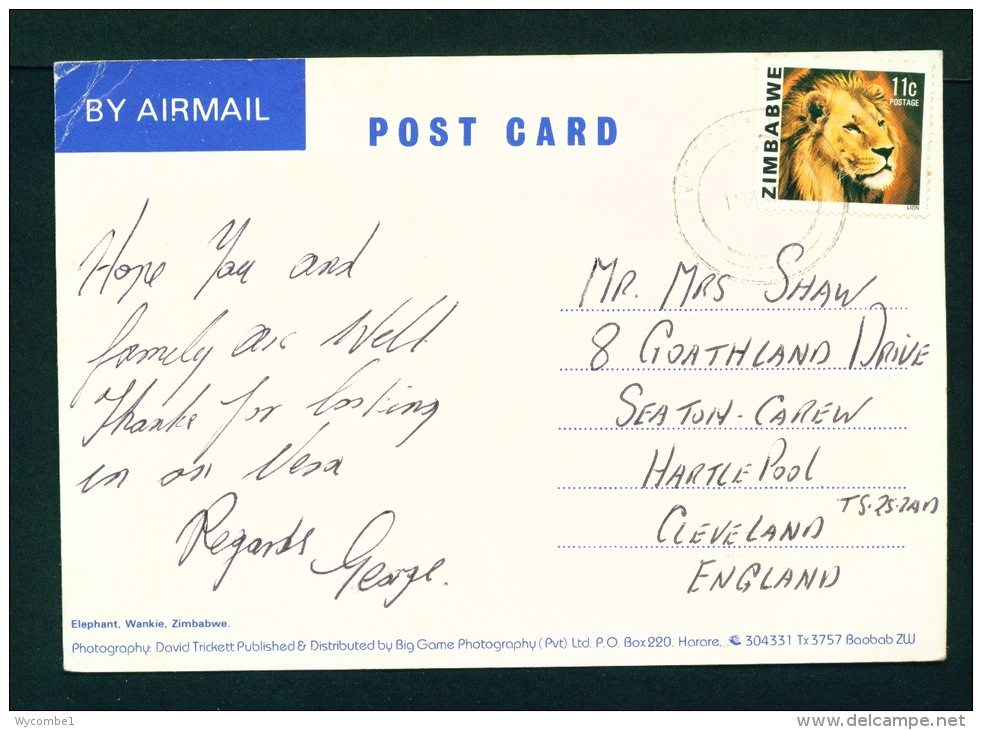 BY AIRMAIL
POST CARD
ZIMBABWE
11c
POSTAGE
LION
Hope You and
family are Well
Thanks for looking
in on Vera
Regards
George.
MR. MRS SHAW
8 GOATHLAND DRIVE
SEATON-CAREW
HARTLEPOOL
TS.25.2AD
CLEVELAND
ENGLAND
Elephant, Wankie, Zimbabwe.
Photography: David Trickett Published & Distributed by Big Game Photography (Pvt) Ltd. P.O. Box 220. Harare. 304331 Tx 3757 Baobab ZW
Wycombe1
www.delcampe.net